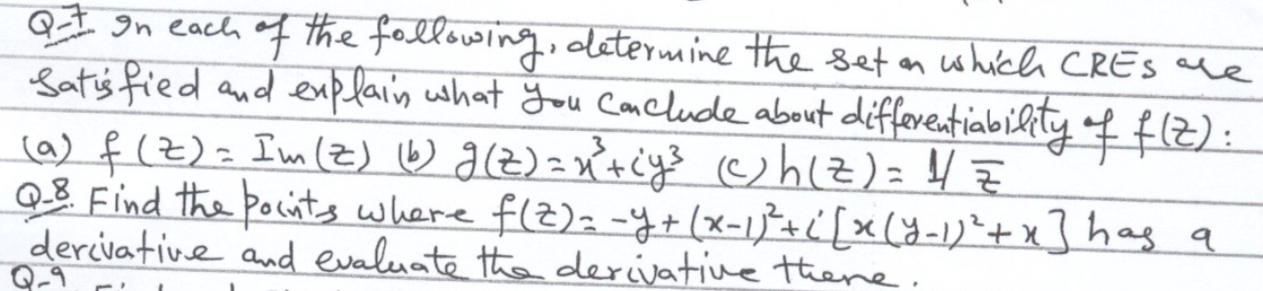 Q-7 In each of the following, determine the set on which CREs are
satisfied and explain what you conclude about differentiability of f(z):
(a) f(z) = Im(z) (b) g(z) = x³+iy³ (c) h(z) = 1/z̅
Q-8. Find the points where f(z) = -y+(x-1)²+i[x(y-1)²+x] has a
derivative and evaluate the derivative there.
Q-9